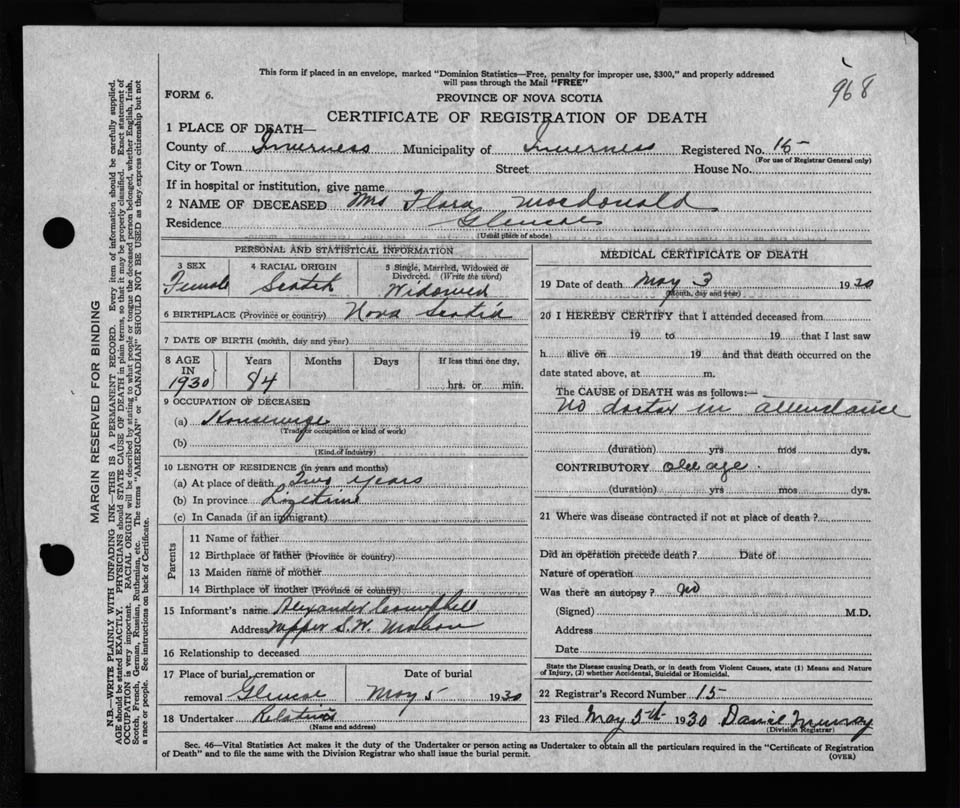 This form if placed in an envelope, marked "Dominion Statistics—Free, penalty for improper use, $300," and properly addressed
will pass through the Mail "FREE"
968
FORM 6.
PROVINCE OF NOVA SCOTIA
CERTIFICATE OF REGISTRATION OF DEATH
1 PLACE OF DEATH—
County of Inverness Municipality of Inverness Registered No. 15
(For use of Registrar General only)
City or Town Street House No.
If in hospital or institution, give name
2 NAME OF DECEASED Mrs Flora Macdonald
Residence Glencoe
(Usual place of abode)
PERSONAL AND STATISTICAL INFORMATION
3 SEX 4 RACIAL ORIGIN 5 Single, Married, Widowed or
Divorced. (Write the word)
Female Scotch Widowed
6 BIRTHPLACE (Province or country) Nova Scotia
7 DATE OF BIRTH (month, day and year)
8 AGE IN 1930 Years 84 Months Days If less than one day,
hrs. or min.
9 OCCUPATION OF DECEASED
(a) Housewife
(Trade or occupation or kind of work)
(b)
(Kind of industry)
10 LENGTH OF RESIDENCE (in years and months)
(a) At place of death Two years
(b) In province Lifetime
(c) In Canada (if an immigrant)
Parents
11 Name of father
12 Birthplace of father (Province or country)
13 Maiden name of mother
14 Birthplace of mother (Province or country)
15 Informant's name Alexander Campbell
Address Upper S.W. Mabou
16 Relationship to deceased
17 Place of burial, cremation or Date of burial
removal Glencoe May 5 1930
18 Undertaker Relatives
(Name and address)
MEDICAL CERTIFICATE OF DEATH
19 Date of death May 3 1930
(Month, day and year)
20 I HEREBY CERTIFY that I attended deceased from
19 to 19 that I last saw
h alive on 19 and that death occurred on the
date stated above, at m.
The CAUSE of DEATH was as follows:—
No doctor in attendance
(duration) yrs mos dys.
CONTRIBUTORY old age.
(duration) yrs mos dys.
21 Where was disease contracted if not at place of death?
Did an operation precede death? Date of
Nature of operation
Was there an autopsy? No
(Signed) M.D.
Address
Date
State the Disease causing Death, or in death from Violent Causes, state (1) Means and Nature
of Injury, (2) whether Accidental, Suicidal or Homicidal.
22 Registrar's Record Number 15
23 Filed May 5th 1930 Daniel Murray
(Division Registrar)
Sec. 46—Vital Statistics Act makes it the duty of the Undertaker or person acting as Undertaker to obtain all the particulars required in the "Certificate of Registration
of Death" and to file the same with the Division Registrar who shall issue the burial permit.
(OVER)
MARGIN RESERVED FOR BINDING
N.B.—WRITE PLAINLY WITH UNFADING INK—THIS IS A PERMANENT RECORD. Every item of information should be carefully supplied.
AGE should be stated EXACTLY. PHYSICIANS should STATE CAUSE OF DEATH in plain terms, so that it may be properly classified. Exact statement of
OCCUPATION is very important. RACIAL ORIGIN will be described by stating to what people or tongue the deceased person belonged, whether English, Irish,
Scotch, French, German, Russian, Ruthenian, etc. The terms "AMERICAN" or "CANADIAN" SHOULD NOT BE USED as they express citizenship but not
a race or people. See instructions on back of Certificate.